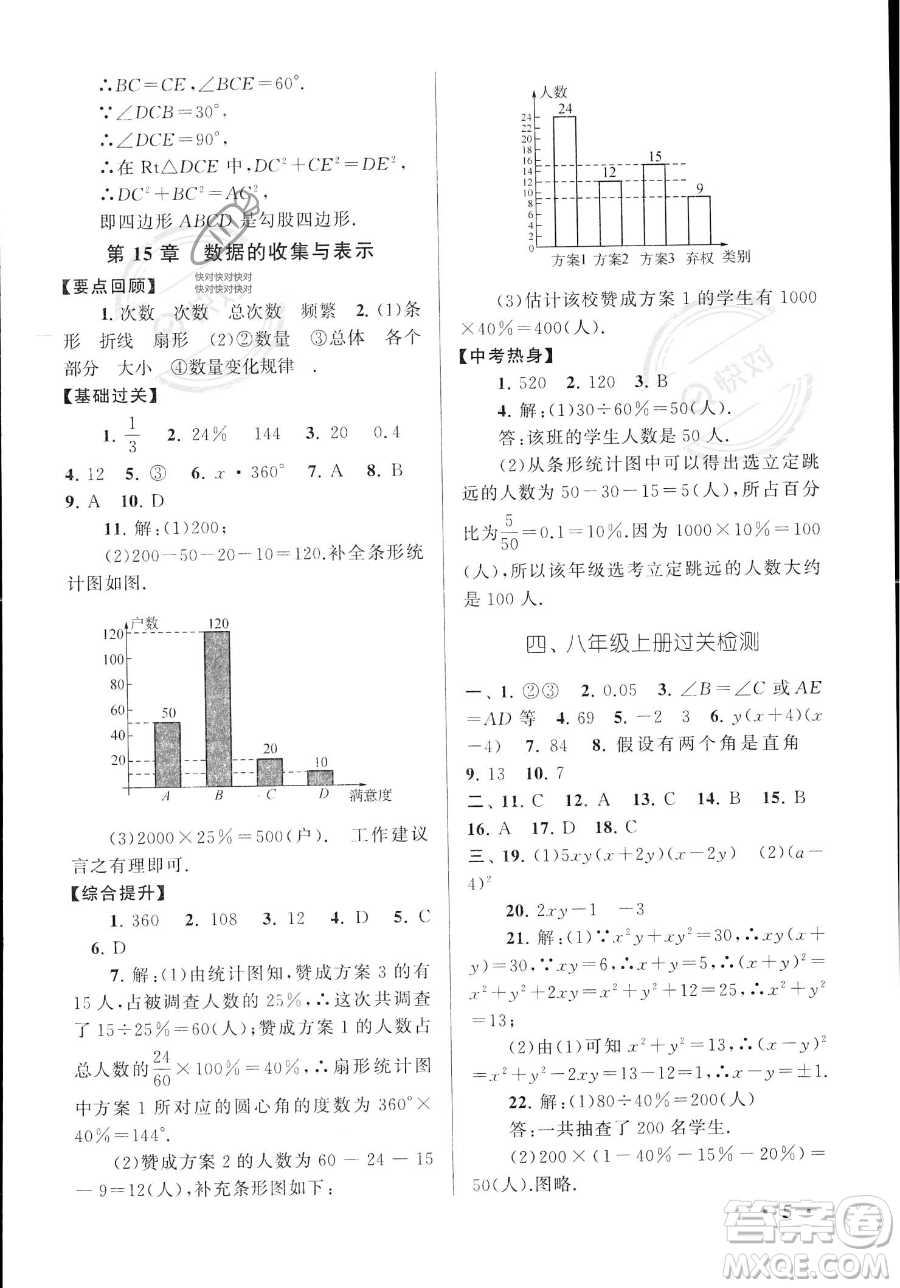 ∴BC=CE,∠BCE=60°.
∵∠DCB=30°,
∴∠DCE=90°,
∴在 Rt△DCE 中,DC²+CE²=DE²,
∴DC²+BC²=AC²,
即四边形 ABCD 是勾股四边形.
第 15 章 数据的收集与表示
快对快对快对
快对快对快对
【要点回顾】
1.次数 次数 总次数 频繁 2.(1)条
形 折线 扇形 (2)②数量 ③总体 各个
部分 大小 ④数量变化规律 .
【基础过关】
1. 1/3 2. 24% 144 3. 20 0.4
4. 12 5. ③ 6. x·360° 7. A 8. C
9. A 10. D
11. 解:(1)200;
(2)200-50-20-10=120.补全条形统
计图如图.
户数
120
120
100
80
60
50
40
20
20
10
A B C D 满意度
(3)2000×25%=500(户). 工作建议
言之有理即可.
【综合提升】
1. 360 2. 108 3. 12 4. D 5. C
6. D
7. 解:(1)由统计图知,赞成方案 3 的有
15 人,占被调查人数的 25%,∴这次共调查
了 15÷25%=60(人);赞成方案 1 的人数占
总人数的 24/60 ×100%=40%,∴扇形统计图
中方案 1 所对应的圆心角的度数为 360°×
40%=144°.
(2)赞成方案 2 的人数为 60-24-15
-9=12(人),补充条形图如下:
人数
24
24
22
20
18
16
14
12
10
8
6
4
2
0
12
15
9
方案1 方案2 方案3 弃权 类别
(3)估计该校赞成方案 1 的学生有 1000
×40%=400(人).
【中考热身】
快对
1. 520 2. 120 3. B
4. 解:(1)30÷60%=50(人).
答:该班的学生人数是 50 人.
(2)从条形统计图中可以得出选立定跳
远的人数为 50-30-15=5(人),所占百分
比为 5/50 =0.1=10%.因为 1000×10%=100
(人),所以该年级选考立定跳远的人数大约
是 100 人.
四、八年级上册过关检测
一、1. ②③ 2. 0.05 3. ∠B=∠C 或 AE
=AD 等 4. 69 5. -2 3 6. y(x+4)(x
-4) 7. 84 8. 假设有两个角是直角
9. 13 10. 7
二、11. C 12. A 13. C 14. B 15. B
16. A 17. D 18. C
三、19. (1)5xy(x+2y)(x-2y) (2)(a-
4)²
20. 2xy-1 -3
21. 解:(1)∵x²y+xy²=30,∴xy(x+
y)=30,∵xy=6,∴x+y=5,∴x²+y²=
x²+y²+2xy=x²+y²+12=25,∴x²+y²
=13;
(2)由(1)可知 x²+y²=13,∴(x-y)²=
x²+y²-2xy=13-12=1,∴x-y=±1.
22. 解:(1)80÷40%=200(人)
答:一共抽查了 200 名学生.
(2)200×(1-40%-20%-15%)=
50(人).图略.
· 5 ·
答案卷
MXQE.COM